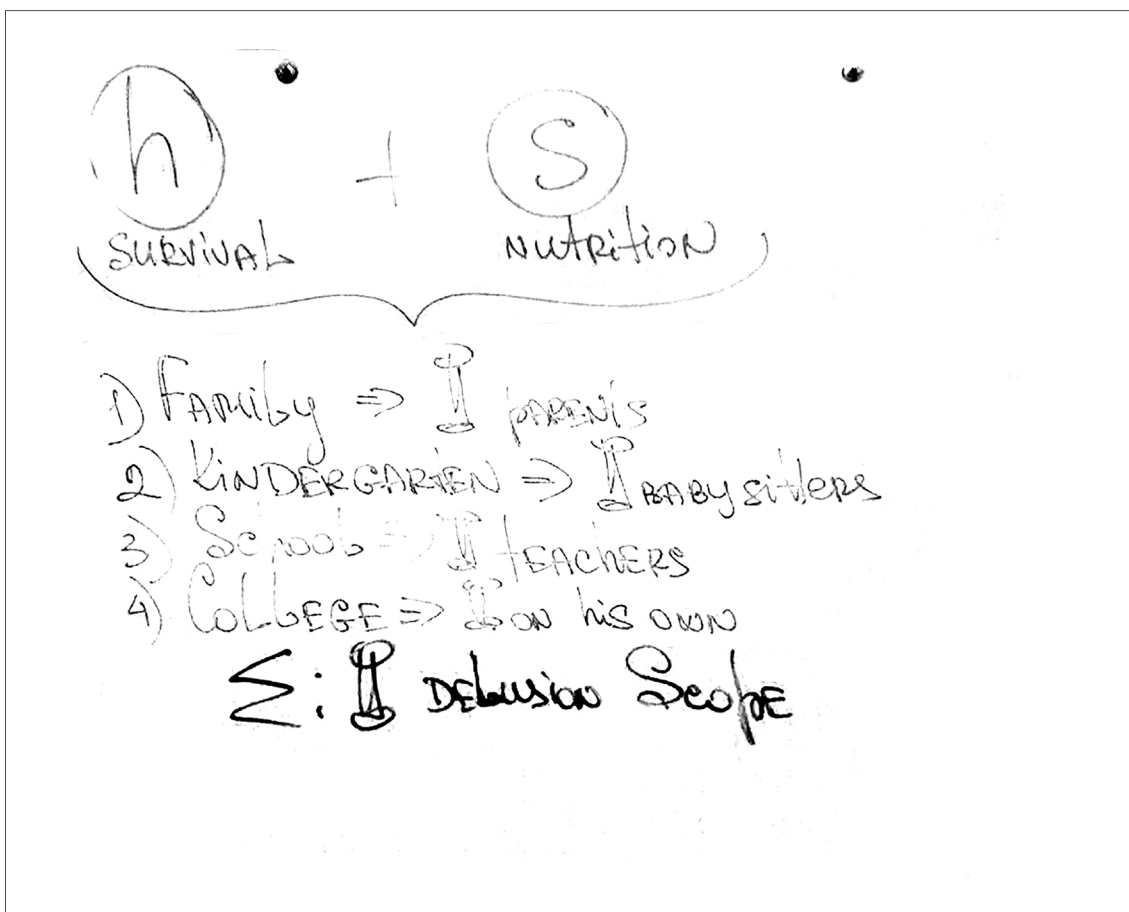 h + S
SURVIVAL NUTRITION
1) FAMILY => I PARENTS
2) KINDERGARTEN => I BABYSITTERS
3) School => I TEACHERS
4) COLLEGE => I ON his OWN
Σ: I DELUSION ScopE